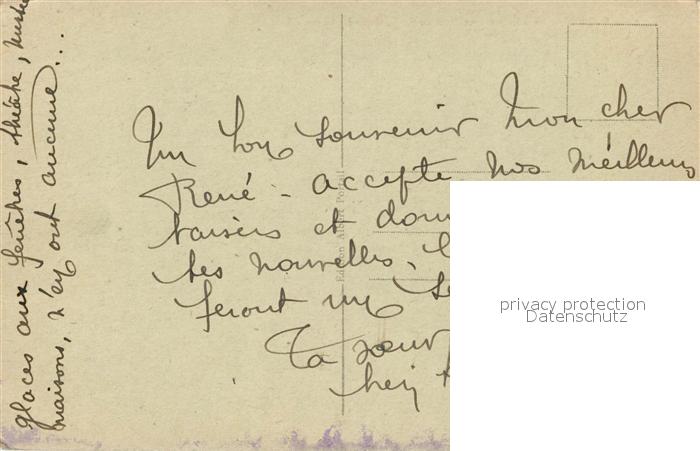 Un bon souvenir mon cher
René - accepte nos meilleurs
baisers et
tes nouvelles,
feront un
Ta sœur
glaces aux fenêtres, théâtre,
maisons, n'ey ont aucune...
Edition Albert
privacy protection
Datenschutz